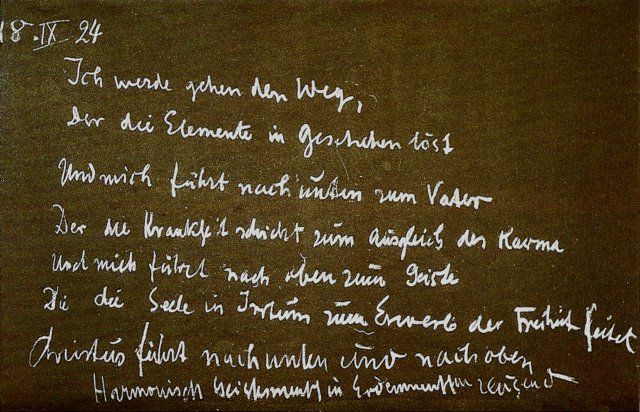 18.IX 24
Ich werde gehen den Weg,
Der die Elemente in Geschehen löst
Und mich führt nach unten zum Vater
Der die Krankheit schickt zum Ausgleich des Karma
Und mich führt nach oben zum Geiste
Die die Seele in Irrtum zum Erwerb der Freiheit leitet
Christus führt nach unten und nach oben
Harmonisch Geistesmensch in Erdenmenschen zeugend